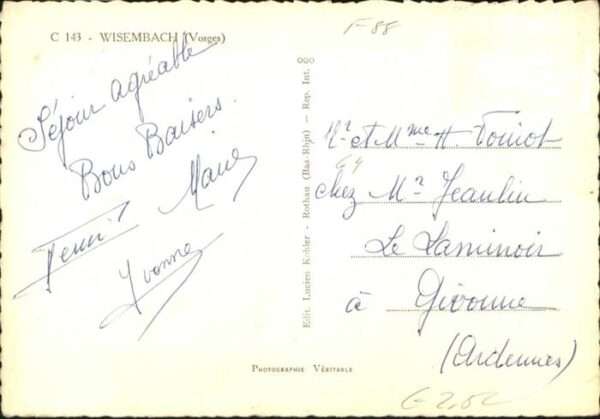 C 143 - WISEMBACH (Vosges)
F-88
Séjour agréable
Bons Baisers
Marie
Henri
Yvonne
Edit. Lucien Kohler - Rothau (Bas-Rhin) - Rep. Int.
Mr et Mme H. Toniot
chez Mr Jeanlin
Le Laminoir
à Givonne
(Ardennes)
PHOTOGRAPHIE VÉRITABLE